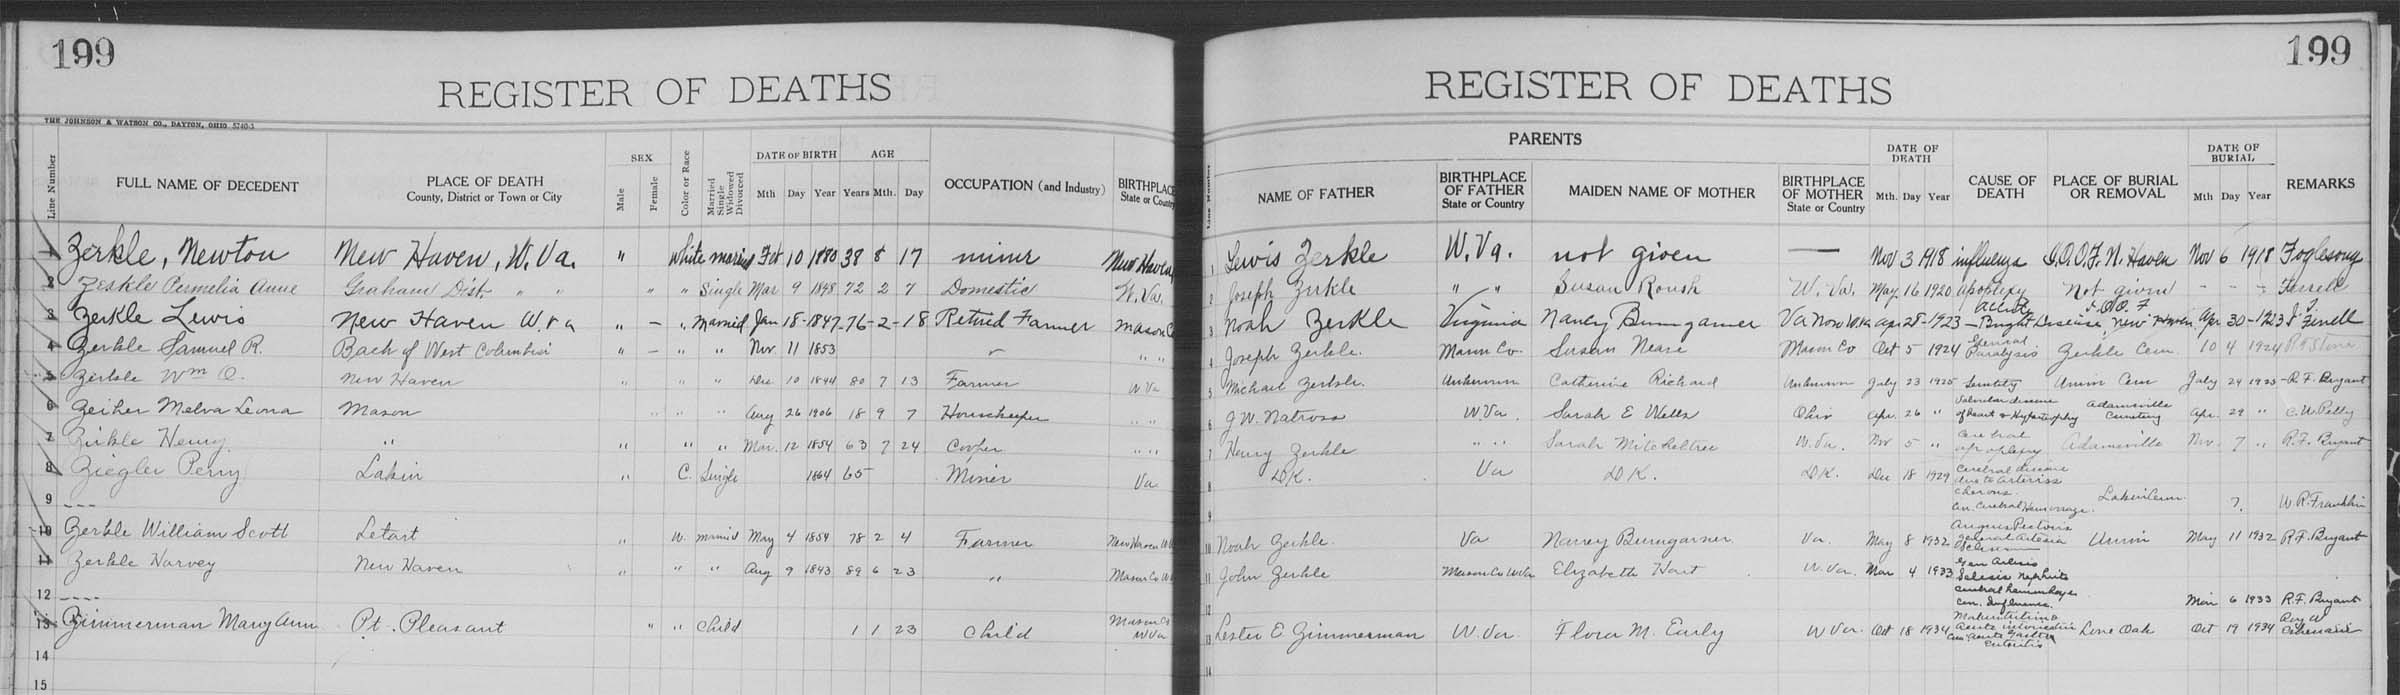 199
REGISTER OF DEATHS
THE JOHNSON & WATSON CO., DAYTON, OHIO 5740-3
Line Number FULL NAME OF DECEDENT PLACE OF DEATH County, District or Town or City SEX Male Female Color or Race Married Single Widowed Divorced DATE OF BIRTH Mth Day Year AGE Years Mth. Day OCCUPATION (and Industry) BIRTHPLACE State or Country
1 Zerkle, Newton New Haven, W. Va. " White married Feb 10 1880 38 8 17 miner New Haven
2 Zerkle Permelia Anne Graham Dist. " " " " Single Mar 9 1848 72 2 7 Domestic W. Va.
3 Zerkle Lewis New Haven W. Va " - " Married Jan 18-1847-76-2-18 Retired Farmer Mason Co
4 Zerkle Samuel R. Back of West Columbia " - " " Nov. 11 1853 " " "
5 Zerkle Wm O. New Haven " " " Dec 10 1844 80 7 13 Farmer W Va
6 Zeiher Melva Leona Mason " " " Aug 26 1906 18 9 7 Housekeeper " "
7 Zirkle Henry " " " " " Mar. 12 1854 63 7 24 Cooper " "
8 Ziegler Perry Lakin " C. Single 1864 65 Miner Va
9 ---
10 Zerkle William Scott Letart " W. married May 4 1854 78 2 4 Farmer New Haven W Va
11 Zerkle Harvey New Haven " " " Aug 9 1843 89 6 23 " Mason Co W Va
12 ----
13 Zimmerman Mary Ann Pt. Pleasant " " Child 1 1 23 Child Mason Co W Va
14
15
199
REGISTER OF DEATHS
Line Number PARENTS NAME OF FATHER BIRTHPLACE OF FATHER State or Country MAIDEN NAME OF MOTHER BIRTHPLACE OF MOTHER State or Country DATE OF DEATH Mth. Day Year CAUSE OF DEATH PLACE OF BURIAL OR REMOVAL DATE OF BURIAL Mth Day Year REMARKS
1 Lewis Zerkle W. Va. not given — Nov 3 1918 influenza I.O.O.F. N. Haven Nov 6 1918 Foglesong
2 Joseph Zirkle " " Susan Roush W. Va. May 16 1920 apoplexy Not given - - -
3 Noah Zerkle Virginia Nancy Bumgarner Va Now W.Va Apr 28-1923 Acute Bright Disease I.O.O.F New Haven Apr 30-1923
4 Joseph Zerkle. Mason Co. Susan Nease Mason Co Oct 5 1924 General Paralysis Zerkle Cem. 10 4 1924
5 Michael Zerkle. Unknown Catherine Richard Unknown July 23 1925 Senility Union Cem July 24 1925 R. F. Bryant
6 J. W. Natross W. Va. Sarah E Wells Ohio Apr. 26 " Valvular disease of heart & Hypertrophy Adamsville Cemetery Apr. 29 " C. W. Petty
7 Henry Zerkle " " Sarah Mitcheltree W. Va. Nov 5 " Cerebral apoplexy Adamsville Nov. 7 " R. F. Bryant
8 D.K. Va D.K. D.K. Dec 18 1929 Cerebral disease due to arterio
9 sclerosis. Con. Cerebral Hemorrage. Lakin Cem. 7. W. R. Franklin
10 Noah Zerkle. Va Nancy Bumgarner Va. May 8 1932 Angina Pectoris General Union May 11 1932 R. F. Bryant
11 John Zerkle Mason Co W Va Elizabeth Hart W. Va. Mar 4 1933 Gen Nephritis
12 Cerebral hemorrhage Con. Influenza. Mar 6 1933 R. F. Bryant
13 Lester E Zimmerman W. Va Flora M. Early W Va. Oct 18 1934 Acute Con. Acute Lone Oak Oct 19 1934 Roy W
14